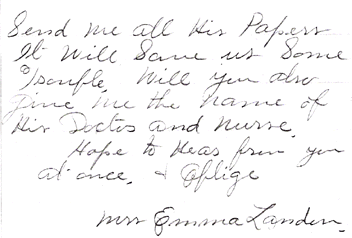 Send me all His Papers
It Will Save us Some
Trouble, Will you also
give me the name of
His Doctor and nurse.
Hope to Hear from you
at once. & Oblige
Mrs Emma Landen.